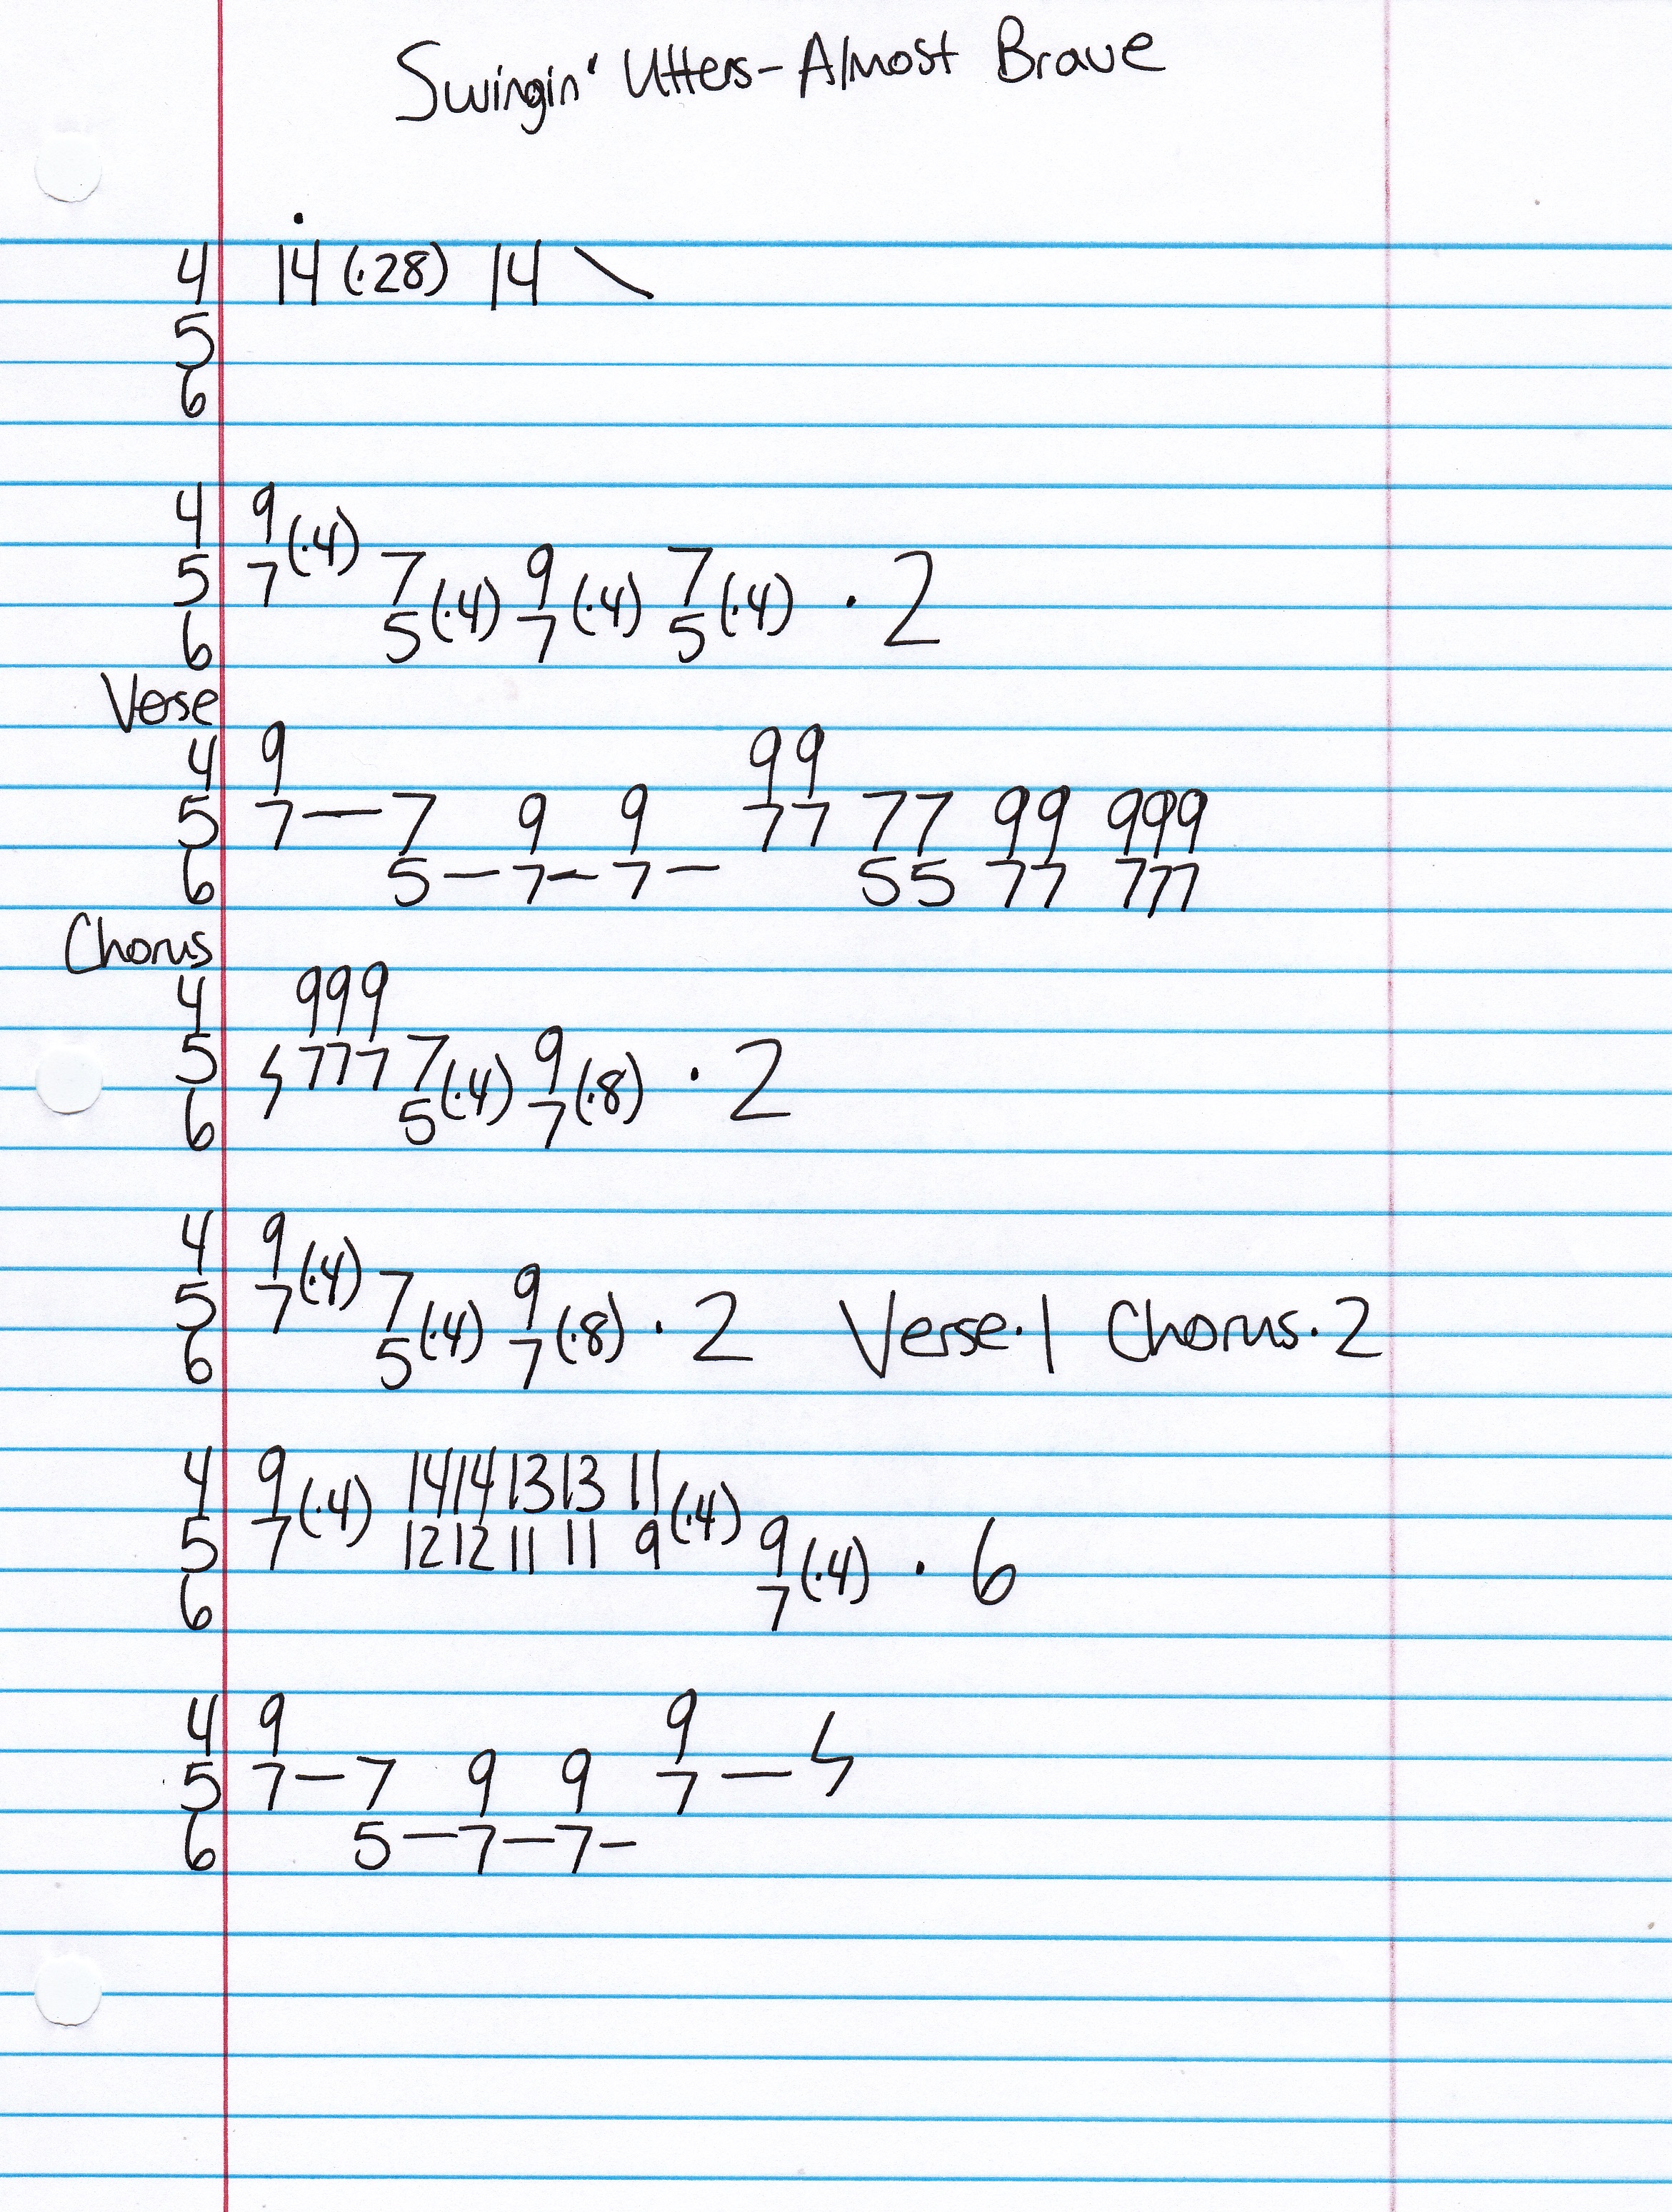 Swingin' Utters - Almost Brave
4 14 (·28) 14 \
5
6
4 9 (·4)
5 7 7 (·4) 9 (·4) 7 (·4) · 2
6 5 7 5
Verse
4 9 99
5 7 — 7 9 9 77 77 99 999
6 5 — 7 — 7 — 55 77 777
Chorus
4 999
5 777 7 (·4) 9 (·8) · 2
6 5 7
4 9 (·4)
5 7 7 (·4) 9 (·8) · 2 Verse·1 Chorus·2
6 5 7
4 9 (·4) 14 14 13 13 11 (·4)
5 7 12 12 11 11 9 9 (·4) · 6
6 7
4 9 9
5 7 — 7 9 9 7 —
6 5 — 7 — 7 —